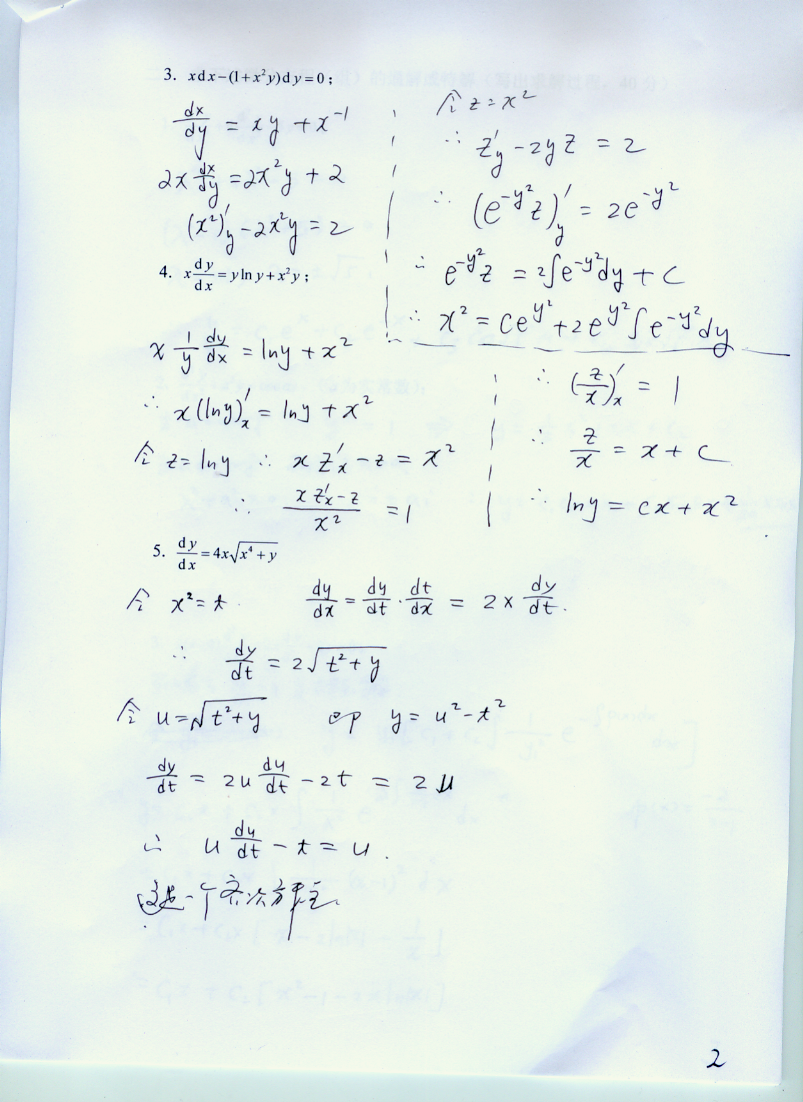 3. xdx−(1+x²y)dy=0;
dx/dy = xy + x⁻¹
2x dx/dy = 2x²y + 2
(x²)'y − 2x²y = 2
令 z = x²
∴ z'y − 2yz = 2
∴ (e^(-y²)z)'y = 2e^(-y²)
∴ e^(-y²)z = 2∫e^(-y²)dy + C
∴ x² = ce^(y²) + 2e^(y²)∫e^(-y²)dy
4. x dy/dx = y ln y + x²y;
x 1/y dy/dx = lny + x²
∴ x(lny)'x = lny + x²
令 z = lny ∴ xz'x − z = x²
∴ (xz'x − z)/x² = 1
∴ (z/x)'x = 1
∴ z/x = x + C
∴ lny = cx + x²
5. dy/dx = 4x√(x⁴+y)
令 x² = t. dy/dx = dy/dt · dt/dx = 2x dy/dt.
∴ dy/dt = 2√(t²+y)
令 u = √(t²+y) 即 y = u² − t²
dy/dt = 2u du/dt − 2t = 2u
∴ u du/dt − t = u.
这是一个齐次方程.
2